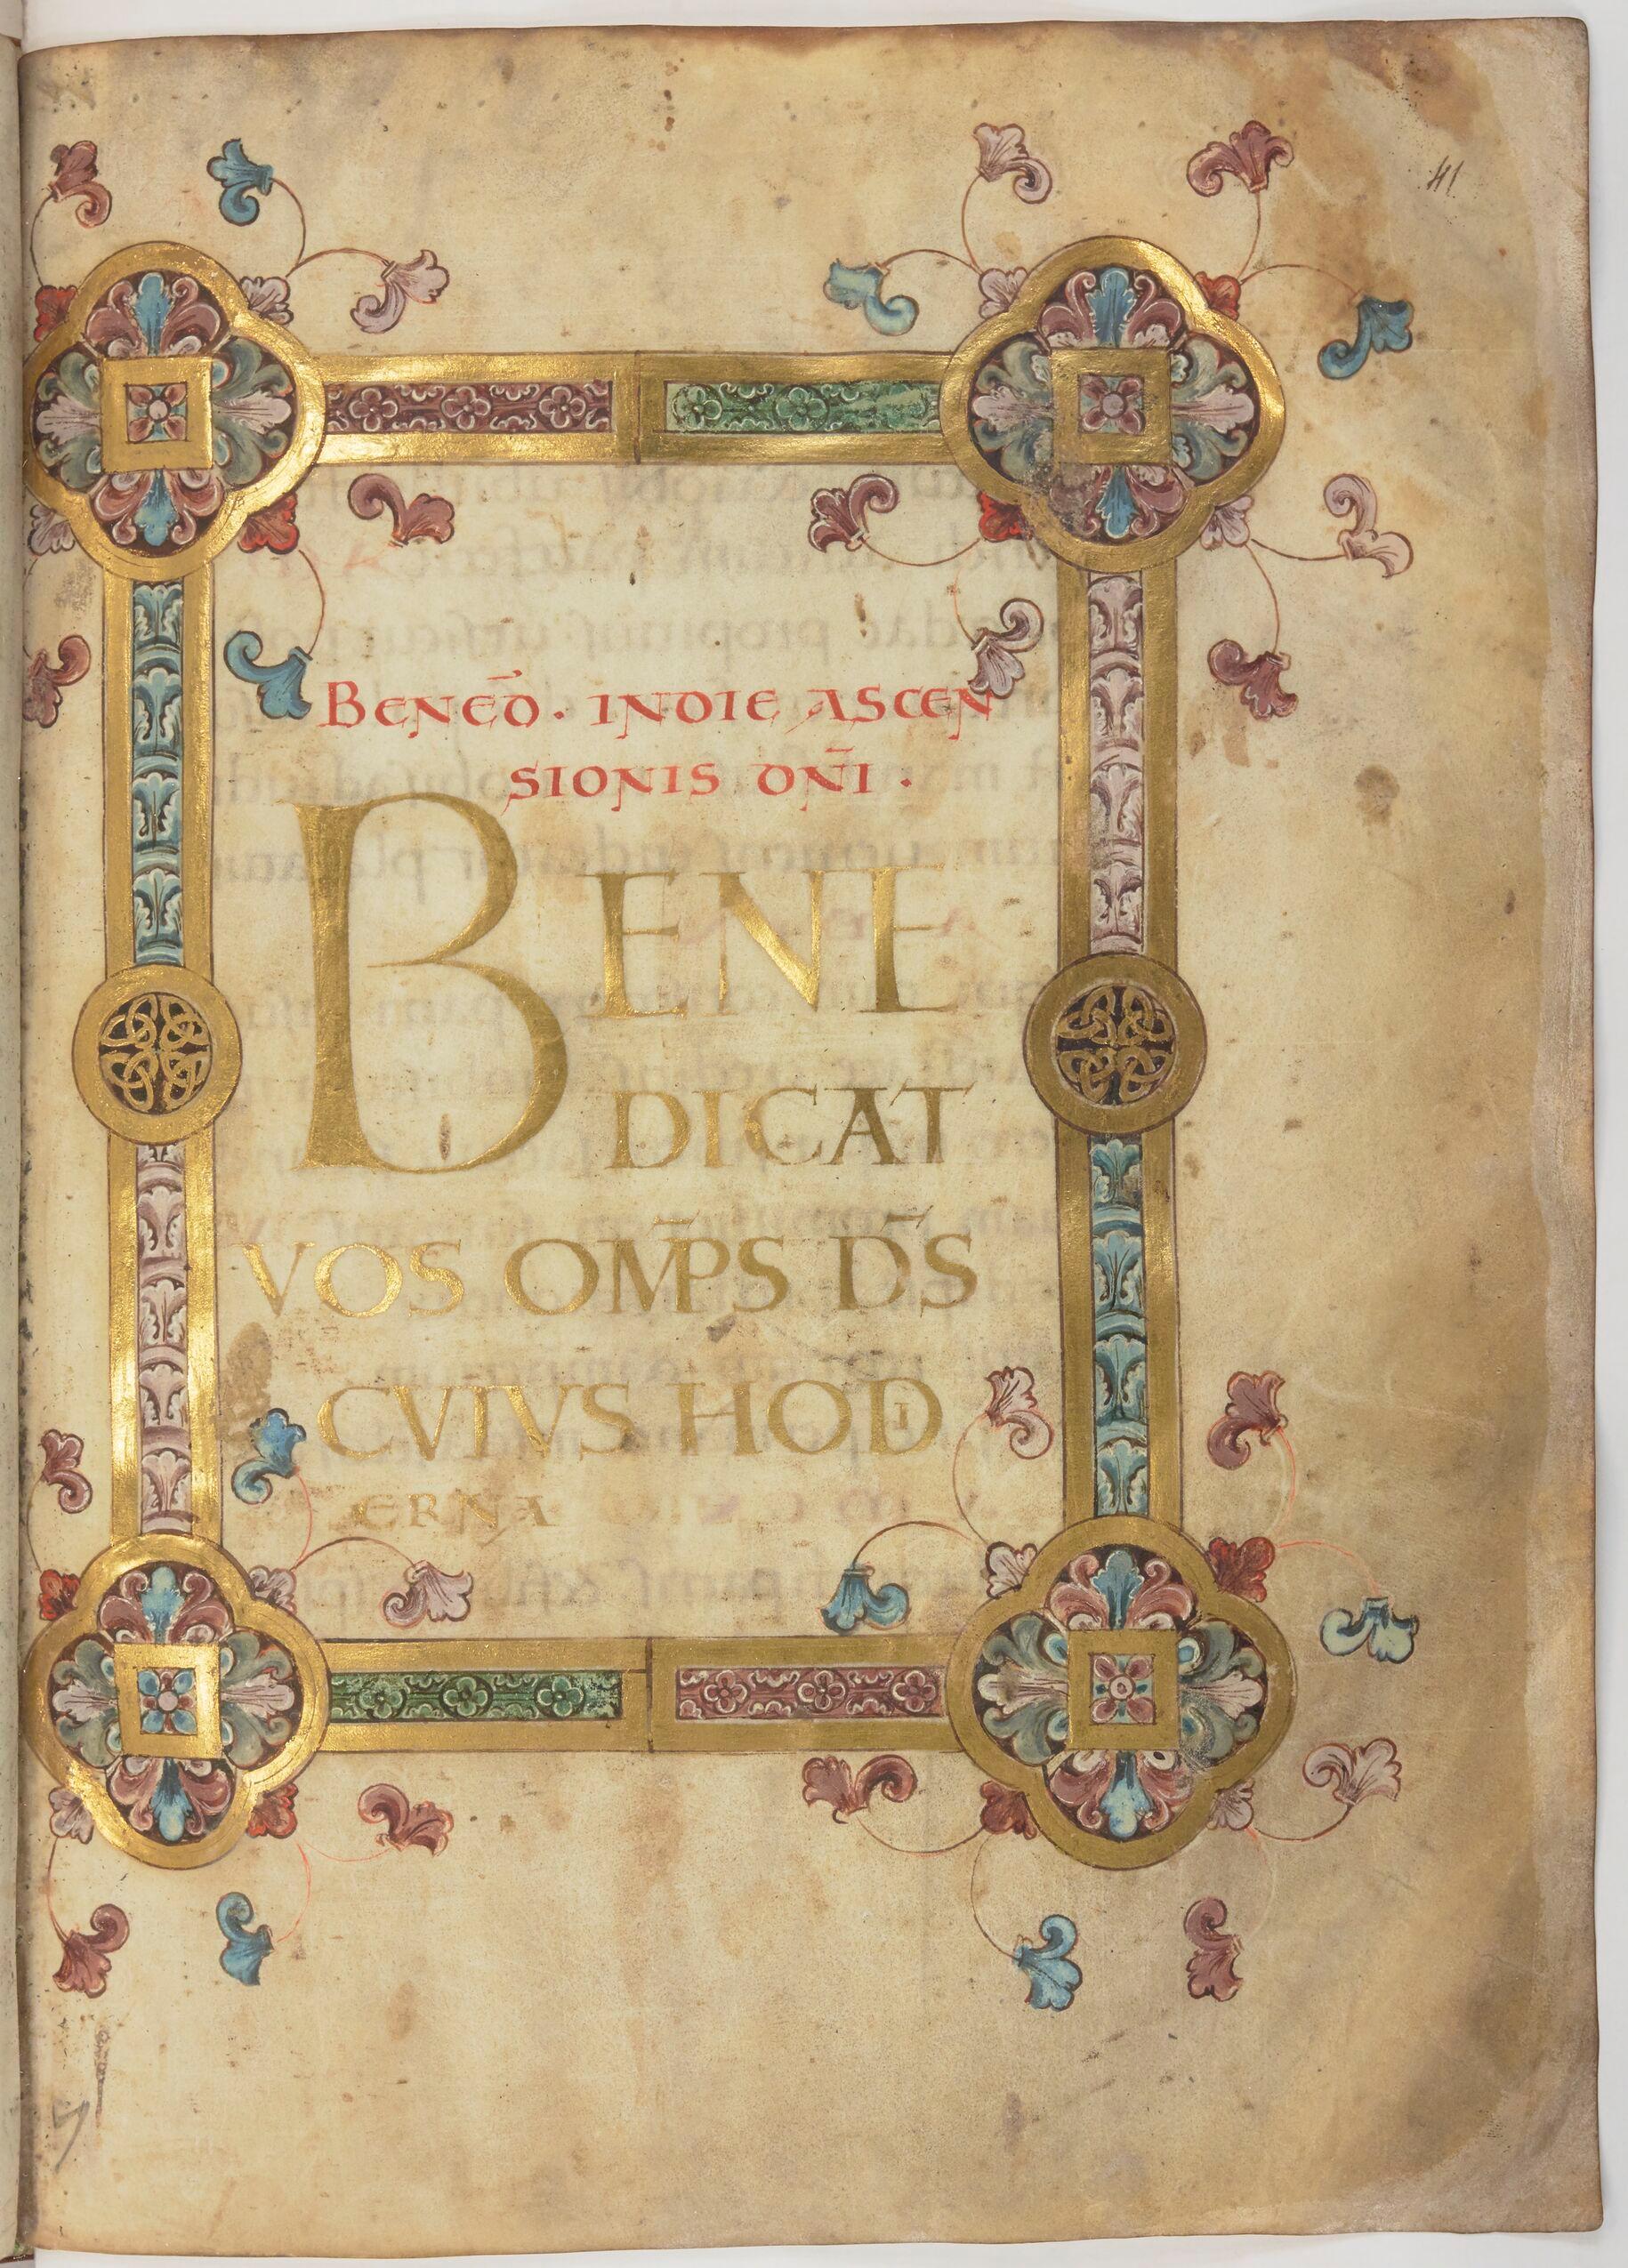 41
BENED̄. IN DIE ASCEN
SIONIS DN̄I.
BENE
DICAT
VOS OM̄PS D̄S
CVIVS HODI
ERNA